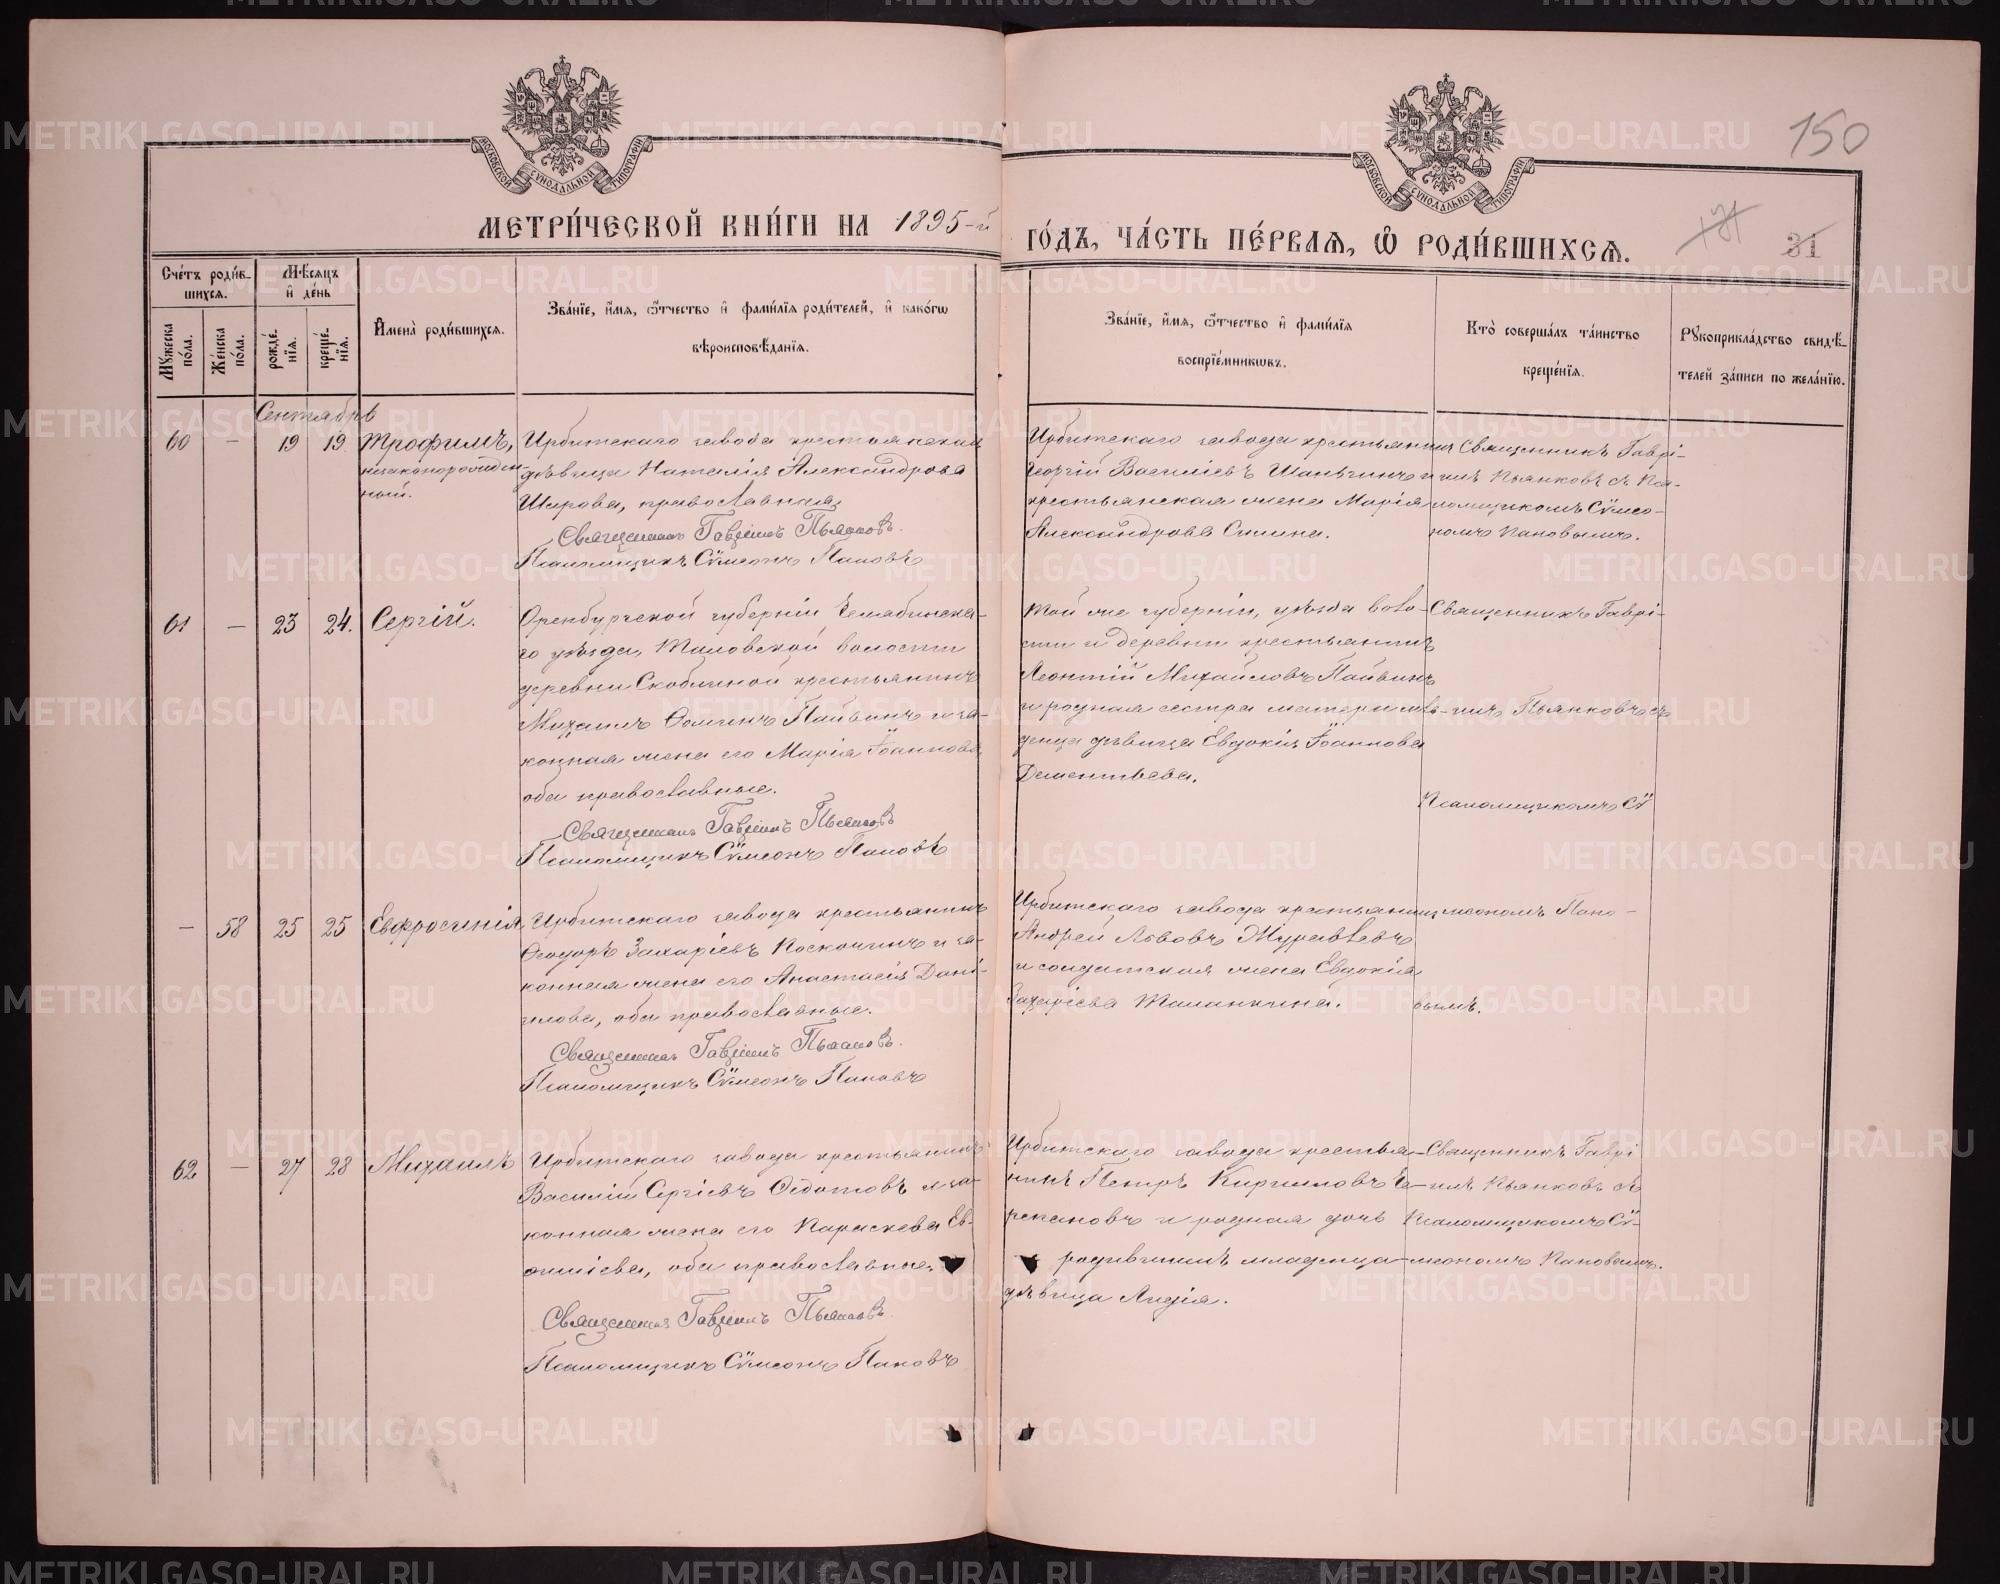 150
МОСКОВСКОЙ СѴНОДАЛЬНОЙ ТИПОГРАФІИ
МОСКОВСКОЙ СѴНОДАЛЬНОЙ ТИПОГРАФІИ
МЕТРИ́ЧЕСКОЙ КНИ́ГИ НА 1895-й ГО́ДЪ, ЧА́СТЬ ПЕ́РВАЯ, Ѿ РОДИ́ВШИХСЯ.
31
Сче́тъ роди́в-
шихся.
Мѣсяцъ
и де́нь
Мꙋжеска по́ла.
Же́нска по́ла.
рожде́-
нїя.
креще́-
нїя.
Имена̀ роди́вшихся.
Зва́нїе, и́мя, ѻ҆́тчество и фами́лїя роди́телей, и како́гѡ
вѣроисповѣ́данїя.
Зва́нїе, и́мя, ѻ҆́тчество и фами́лїя
воспрїе́мникѡвъ.
Кто̀ соверша́лъ та́инство
креще́нїя.
Рꙋкоприкла́дство свидѣ́-
телей за́писи по жела́нїю.
Сентябрь
60 — 19 19 Трофимъ,
незаконорожден-
ный.
Ирбитскаго завода крестьянская
дѣвица Наталія Александрова
Широва, православная
Священникъ Гавріилъ Пьянковъ.
Псаломщикъ Сѵмеонъ Пановъ
Ирбитскаго завода крестьянинъ
Георгій Василіевъ Шаньгинъ и
крестьянская жена Марія
Александрова Силина.
Священникъ Гаврі-
илъ Пьянковъ съ Пса-
ломщикомъ Сѵмео-
номъ Пановымъ.
61 — 23 24. Сергій.
Оренбургской губерніи Челябинска-
го уѣзда, Таловской волости
деревни Скоблиной крестьянинъ
Михаилъ Ѳоминъ Пайвинъ и за-
конная жена его Марія Іоаннова
оба православные.
Священникъ Гавріилъ Пьянковъ
Псаломщикъ Сѵмеонъ Пановъ
Той же губерніи, уѣзда воло-
сти и деревни крестьянинъ
Леонтій Михайловъ Пайвинъ
и родная сестра матери мла-
денца дѣвица Евдокія Іоаннова
Дементьева.
Священникъ Гаврі-
илъ Пьянковъ съ
Псаломщикомъ Сѵ
— 58 25 25 Евфросинія
Ирбитскаго завода крестьянинъ
Ѳеодоръ Захаріевъ Поскочинъ и за-
конная жена его Анастасія Дані-
илова, оба православные.
Священникъ Гавріилъ Пьянковъ.
Псаломщикъ Сѵмеонъ Пановъ
Ирбитскаго завода крестьянинъ
Андрей Львовъ Журавлевъ
и солдатская жена Евдокія
Захаріева Таланкина.
меономъ Пано-
вымъ.
62 — 27 28 Михаилъ
Ирбитскаго завода крестьянинъ
Василій Сергіевъ Ѳедотовъ и за-
конная жена его Параскева Ев-
оиміева, оба православные.
Священникъ Гавріилъ Пьянковъ
Псаломщикъ Сѵмеонъ Пановъ
Ирбитскаго завода крестья-
нинъ Петръ Кирилловъ Че-
репановъ и родная дочь
родившимъ младенца
дѣвица Лидія.
Священникъ Гаврі
илъ Пьянковъ съ
Псаломщикомъ Сѵ-
меономъ Пановымъ.
METRIKI.GASO-URAL.RU